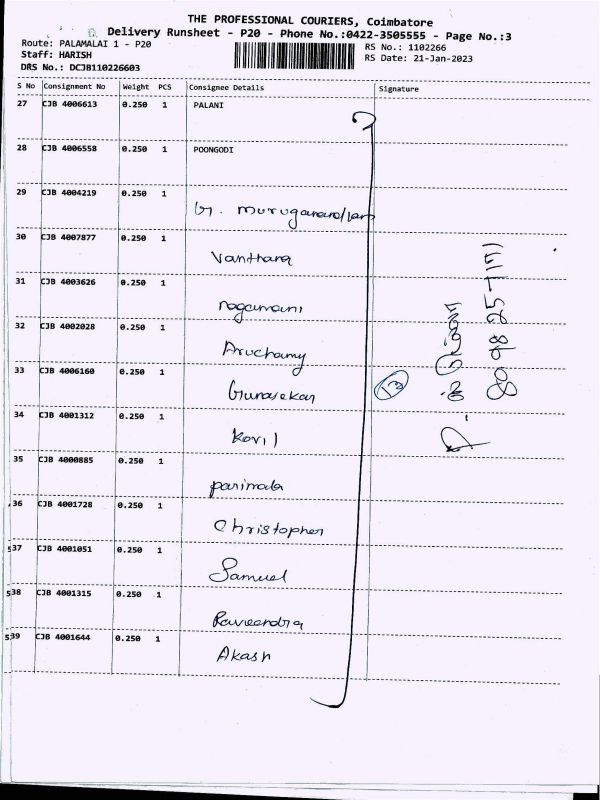 THE PROFESSIONAL COURIERS, Coimbatore
Delivery Runsheet - P20 - Phone No.:0422-3505555 - Page No.:3
Route: PALAMALAI 1 - P20
Staff: HARISH
DRS No.: DCJB110226603
RS No.: 1102266
RS Date: 21-Jan-2023
S No Consignment No Weight PCS Consignee Details Signature
27 CJB 4006613 0.250 1 PALANI
28 CJB 4006558 0.250 1 POONGODI
29 CJB 4004219 0.250 1 G. Muruganandham
30 CJB 4007877 0.250 1 Vanthana
31 CJB 4003626 0.250 1 nagamani
32 CJB 4002028 0.250 1 Aruchamy
33 CJB 4006160 0.250 1 Gunasekar
13
34 CJB 4001312 0.250 1 Kovil
35 CJB 4000885 0.250 1 parimala
36 CJB 4001728 0.250 1 Christopher
37 CJB 4001051 0.250 1 Samuel
38 CJB 4001315 0.250 1 Raveendra
39 CJB 4001644 0.250 1 Akash